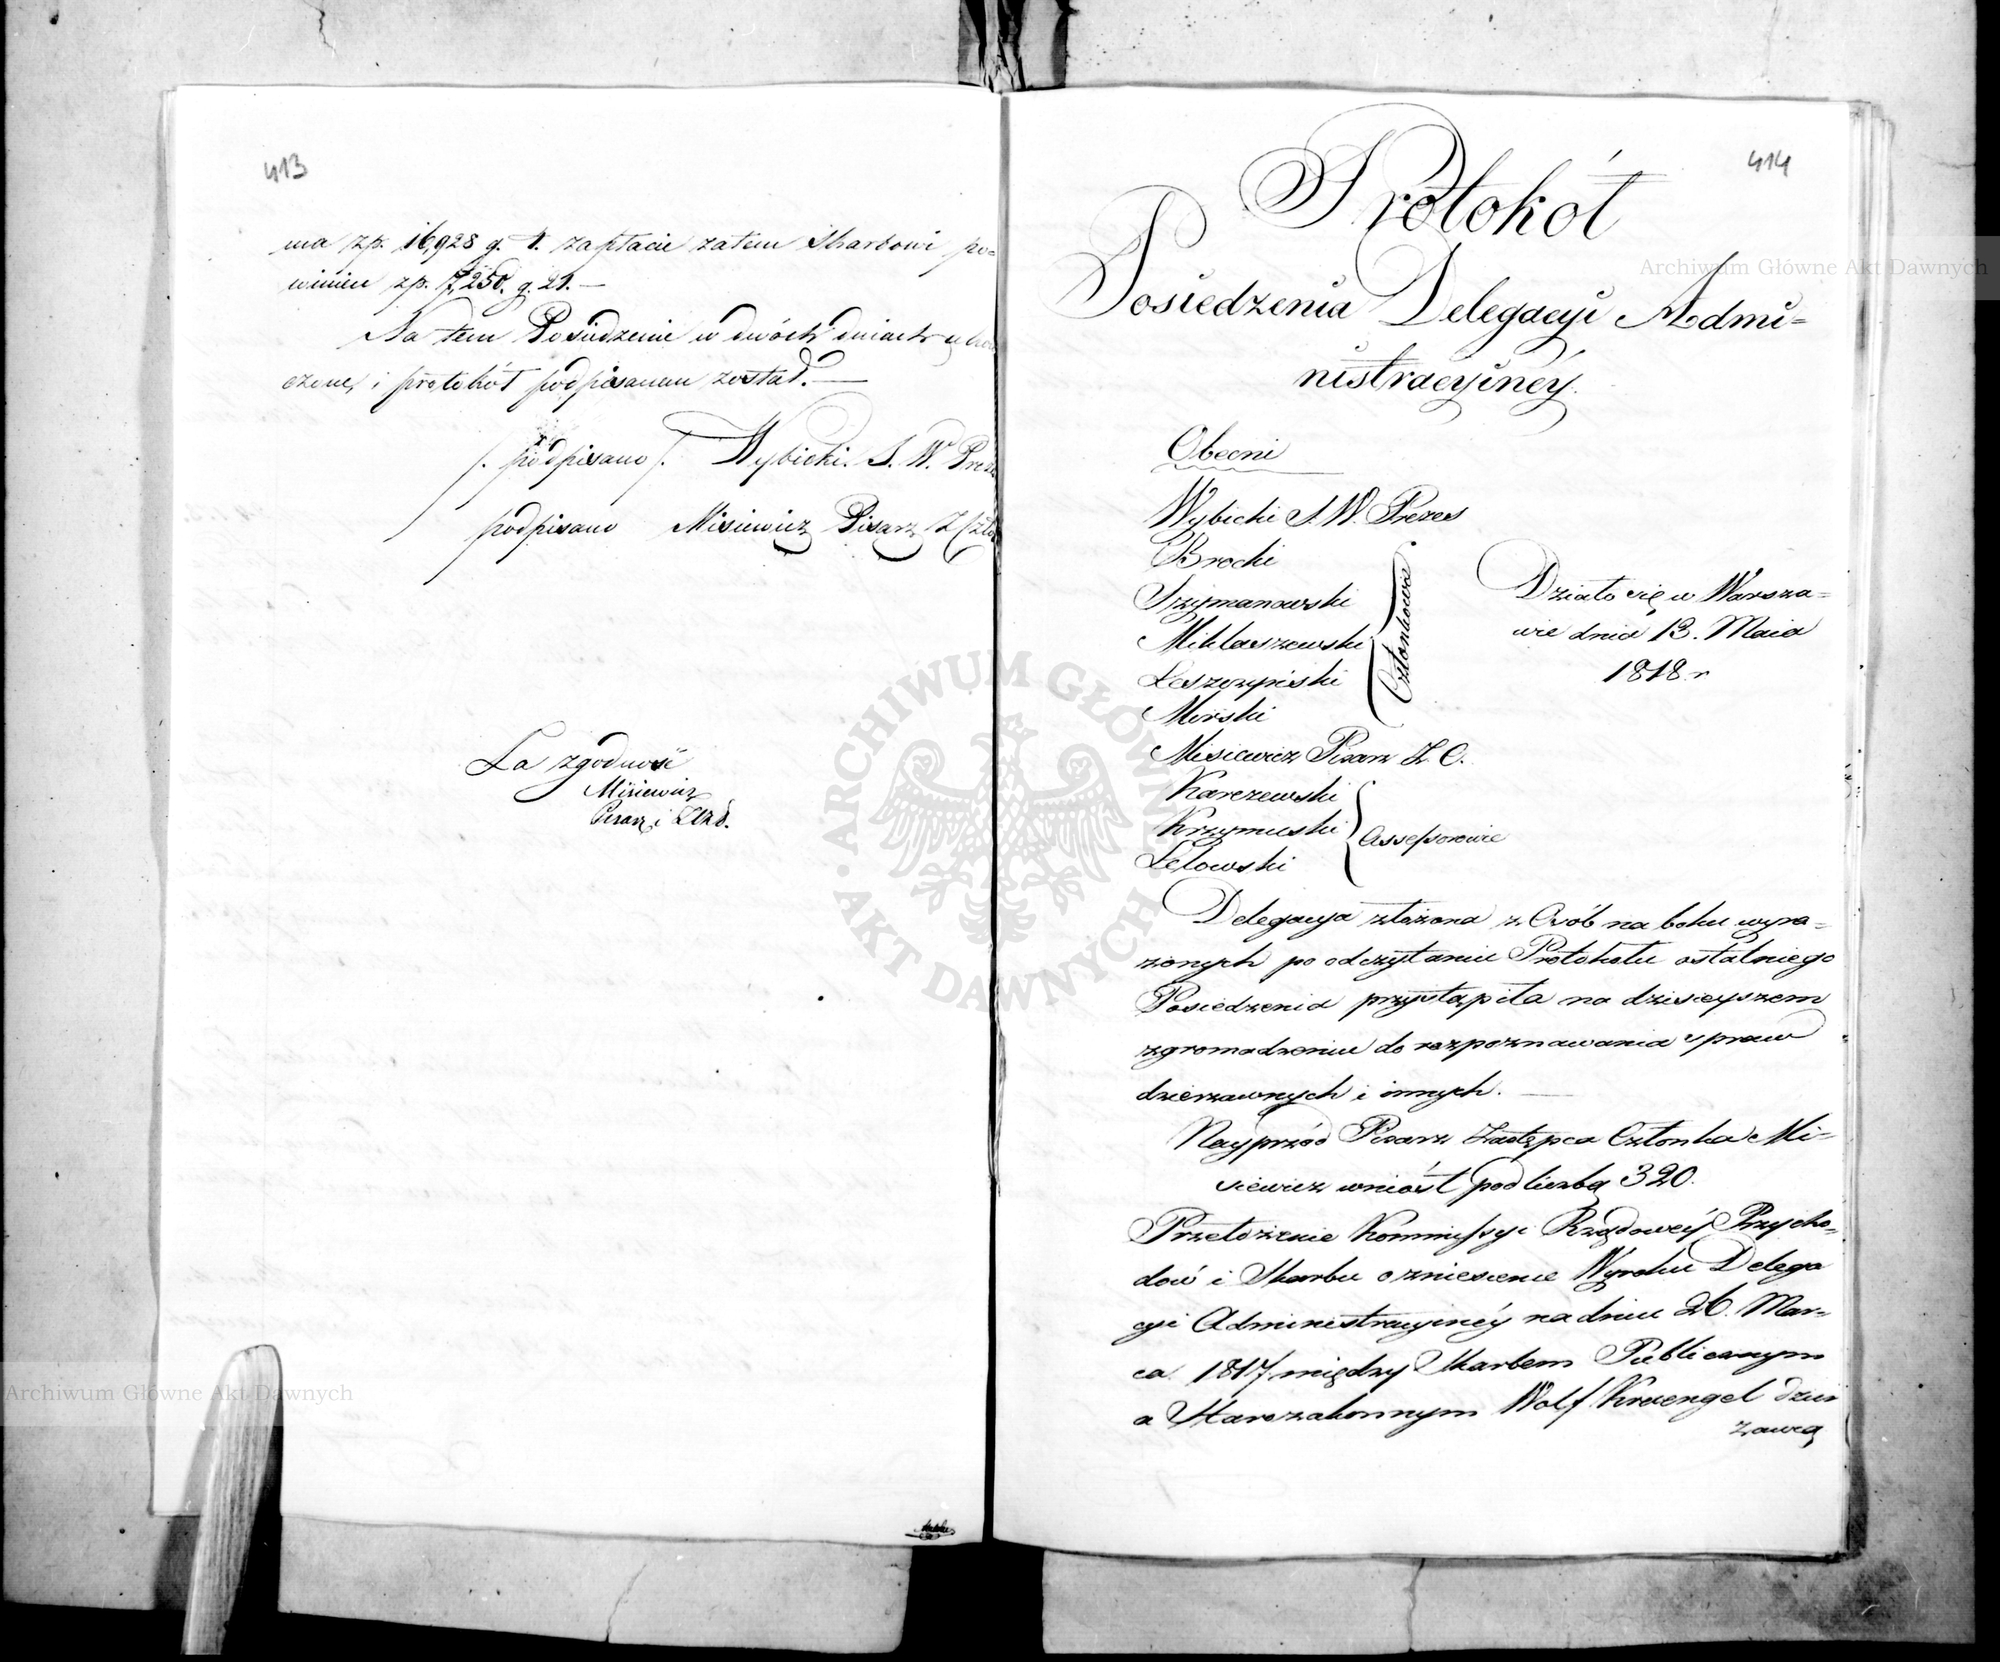 413
ma zp. 16,928 g. 1. zapłacić zatem Skarbowi po=
winien zp. 7,250. g. 21. —
Na tem Posiedzenie w dwóch dniach
czone, i protokół podpisanem został. —
/. podpisano /. Wybicki. S. W. Prez
podpisano Misiewicz Pisarz Z. Czło
Za zgodność
Misiewicz
Pisarz i
414
Protokół
Posiedzenia Delegacyi Admi=
nistracyinéy.
Obecni
Wybicki S. W. Prezes
Brocki
Szymanowski
Miklaszewski
Leszczyński
Mirski
Członkowie
Misiewicz Pisarz Z. C.
Karczewski
Krzymuski
Lelowski
Assessorowie
Działo się w Warsza=
wie dnia 13. Maia
1818 r
Delegacya złożona z Osób na boku wyra=
żonych po odczytaniu Protokołu ostatniego
Posiedzenia przystąpiła na dzisieyszem
zgromadzeniu do rozpoznawania spraw
dzierżawnych i innych. —
Nayprzód Pisarz Zastępca Członka Mi=
siewicz wniósł pod liczbą 320.
Przełożenie Kommissyi Rządowéy Przycho=
dów i Skarbu o zniesienie Wyroku Delega
cyi Administracyinéy na dniu 26. Mar=
ca 1817 między Skarbem Publicznym
a Starozakonnym Wolf Krwengel dzier
żawcą
Archiwum Główne Akt Dawnych
Archiwum Główne Akt Dawnych
ARCHIWUM GŁÓWNE AKT DAWNYCH